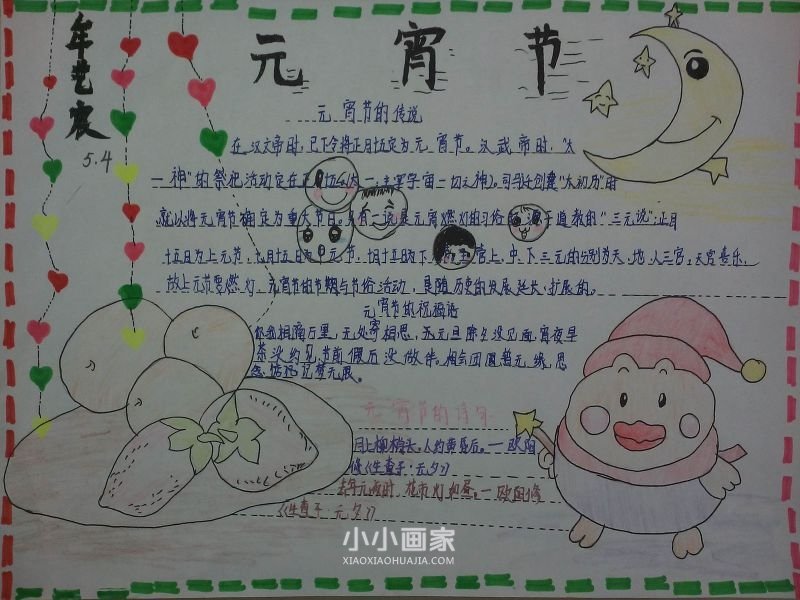 元宵节
5.4
元宵节的传说
在汉文帝时,已下令将正月十五定为元宵节。汉武帝时,"太
一神"的祭祀活动定在正月十五
宇宙一切之神)。司马迁创建"太初历"时
就以将元宵节确定为重大节日。另有一说是元宵燃灯的习俗 源于道教的"三元说";正月
十五日为上元节,七月十五日为中元节,十月十五日为下
上、中、下三元的分别为天、地、人三官。天官喜乐,
故上元节要燃灯。元宵节的节期与节俗活动,是随历史的发展延长,扩展的。
元宵节的祝福语
你我相隔万里,无处寄相思,
元旦除夕没见面,宵夜早
茶没约见,节前假后没做伴。相会团圆暂无缘,思
念
元宵节的诗句
月上柳梢头,人约黄昏后。—欧阳
修《生查子·元夕》
去年元夜时,花市灯如昼。—欧阳修
《生查子·元夕》
小小画家
XIAOXIAOHUAJIA.COM